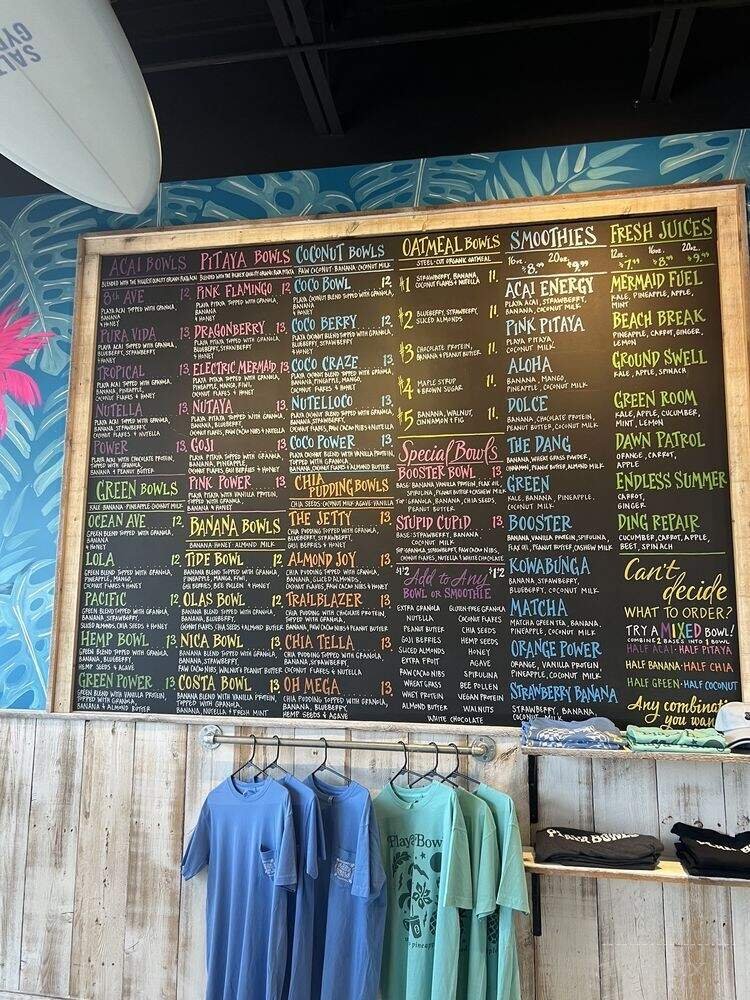 SALTY
GYP
ACAI BOWLS
BLENDED WITH THE HIGHEST QUALITY ORGANIC ACAI
8th AVE 12.
PLAYA ACAI TOPPED WITH GRANOLA,
BANANA
& HONEY
PURA VIDA 13.
PLAYA ACAI TOPPED WITH GRANOLA,
BLUEBERRY, STRAWBERRY
& HONEY
TROPICAL 13.
PLAYA ACAI TOPPED WITH GRANOLA,
BANANA, PINEAPPLE,
COCONUT FLAKES & HONEY
NUTELLA 13.
PLAYA ACAI TOPPED WITH GRANOLA,
BANANA, STRAWBERRY,
COCONUT FLAKES & NUTELLA
POWER 13.
PLAYA ACAI WITH CHOCOLATE PROTEIN,
TOPPED WITH GRANOLA,
BANANA & PEANUT BUTTER
GREEN BOWLS
KALE·BANANA·PINEAPPLE·COCONUT MILK
OCEAN AVE 12.
GREEN BLEND TOPPED WITH GRANOLA,
BANANA
& HONEY
LOLA 12.
GREEN BLEND TOPPED WITH GRANOLA,
PINEAPPLE, MANGO,
COCONUT FLAKES & HONEY
PACIFIC 12.
GREEN BLEND TOPPED WITH GRANOLA,
BANANA, STRAWBERRY,
SLICED ALMONDS, CHIA SEEDS & HONEY
HEMP BOWL 13.
GREEN BLEND TOPPED WITH GRANOLA,
BANANA, BLUEBERRY,
HEMP SEEDS & AGAVE
GREEN POWER 13.
GREEN BLEND WITH VANILLA PROTEIN,
TOPPED WITH GRANOLA,
BANANA & ALMOND BUTTER
PITAYA BOWLS
BLENDED WITH THE HIGHEST QUALITY ORGANIC PITAYA
PINK FLAMINGO 12.
PLAYA PITAYA TOPPED WITH GRANOLA,
BANANA
& HONEY
DRAGONBERRY 13.
PLAYA PITAYA TOPPED WITH GRANOLA,
BLUEBERRY, STRAWBERRY
& HONEY
ELECTRIC MERMAID 13.
PLAYA PITAYA TOPPED WITH GRANOLA,
PINEAPPLE, MANGO, KIWI,
COCONUT FLAKES & HONEY
NUTAYA 13.
PLAYA PITAYA TOPPED WITH GRANOLA,
BANANA, STRAWBERRY,
COCONUT FLAKES & NUTELLA
GOJI 13.
PLAYA PITAYA TOPPED WITH GRANOLA,
BANANA, PINEAPPLE,
COCONUT FLAKES, GOJI BERRIES & HONEY
PINK POWER 13.
PLAYA PITAYA WITH VANILLA PROTEIN,
TOPPED WITH GRANOLA,
BANANA, STRAWBERRY & HONEY
BANANA BOWLS
BANANA·HONEY·ALMOND MILK
TIDE BOWL 12.
BANANA BLEND TOPPED WITH GRANOLA,
PINEAPPLE, MANGO,
GOJI BERRIES, BEE POLLEN & HONEY
OLAS BOWL 12.
BANANA BLEND TOPPED WITH GRANOLA,
BLUEBERRY, STRAWBERRY,
COCONUT FLAKES, CHIA SEEDS & ALMOND BUTTER
NICA BOWL 13.
BANANA BLEND TOPPED WITH GRANOLA,
BANANA, STRAWBERRY,
RAW CACAO NIBS, WALNUT & PEANUT BUTTER
COSTA BOWL 13.
BANANA BLEND WITH VANILLA PROTEIN,
TOPPED WITH GRANOLA,
BANANA, NUTELLA & FRESH MINT
COCONUT BOWLS
RAW COCONUT·BANANA·COCONUT MILK
COCO BOWL 12.
PLAYA COCONUT BLEND TOPPED WITH GRANOLA,
BANANA
& HONEY
COCO BERRY 12.
PLAYA COCONUT BLEND TOPPED WITH GRANOLA,
BLUEBERRY, STRAWBERRY
& HONEY
COCO CRAZE 13.
PLAYA COCONUT BLEND TOPPED WITH GRANOLA,
BANANA, PINEAPPLE, MANGO,
COCONUT FLAKES & HONEY
NUTELLOCO 13.
PLAYA COCONUT BLEND TOPPED WITH GRANOLA,
BANANA, STRAWBERRY,
COCONUT FLAKES, RAW CACAO NIBS & NUTELLA
COCO POWER 13.
PLAYA COCONUT BLEND WITH VANILLA PROTEIN,
TOPPED WITH GRANOLA,
BANANA, COCONUT FLAKES & ALMOND BUTTER
CHIA
PUDDING BOWLS
CHIA SEEDS·COCONUT MILK·AGAVE·VANILLA
THE JETTY 13.
CHIA PUDDING TOPPED WITH GRANOLA,
BLUEBERRY, STRAWBERRY,
GOJI BERRIES & HONEY
ALMOND JOY 13.
CHIA PUDDING TOPPED WITH GRANOLA,
BANANA, SLICED ALMONDS,
COCONUT FLAKES, RAW CACAO NIBS & HONEY
TRAILBLAZER 13.
CHIA PUDDING WITH CHOCOLATE PROTEIN,
TOPPED WITH GRANOLA,
BANANA, RAW CACAO NIBS & PEANUT BUTTER
CHIA TELLA 13.
CHIA PUDDING TOPPED WITH GRANOLA,
BANANA, STRAWBERRY,
COCONUT FLAKES, NUTELLA & WHITE CHOCOLATE
OH MEGA 13.
CHIA PUDDING TOPPED WITH GRANOLA,
BANANA, BLUEBERRY,
HEMP SEEDS & AGAVE
OATMEAL BOWLS
STEEL-CUT ORGANIC OATMEAL
#1 STRAWBERRY, BANANA 11.
COCONUT FLAKES & NUTELLA
#2 BLUEBERRY, STRAWBERRY, 11.
SLICED ALMONDS
#3 CHOCOLATE PROTEIN, 11.
BANANA & PEANUT BUTTER
#4 MAPLE SYRUP 11.
& BROWN SUGAR
#5 BANANA, WALNUT, 11.
CINNAMON & FIG
Special Bowls
BOOSTER BOWL 13.
BASE: BANANA, VANILLA PROTEIN, FLAX OIL,
SPIRULINA, PEANUT BUTTER & CASHEW MILK
TOP: GRANOLA, BANANA, CHIA SEEDS,
PEANUT BUTTER
STUPID CUPID 13.
BASE: STRAWBERRY, BANANA,
COCONUT MILK
TOP: GRANOLA, STRAWBERRY, RAW CACAO NIBS,
COCONUT FLAKES, NUTELLA & WHITE CHOCOLATE
$1.2 Add to Any $1.2
BOWL OR SMOOTHIE
EXTRA GRANOLA
NUTELLA
PEANUT BUTTER
GOJI BERRIES
SLICED ALMONDS
EXTRA FRUIT
RAW CACAO NIBS
WHEAT GRASS
WHEY PROTEIN
ALMOND BUTTER
GLUTEN-FREE GRANOLA
COCONUT FLAKES
CHIA SEEDS
HEMP SEEDS
HONEY
AGAVE
SPIRULINA
BEE POLLEN
VEGAN PROTEIN
WALNUTS
WHITE CHOCOLATE
SMOOTHIES
16oz. 20oz.
$8.99 $9.99
ACAI ENERGY
PLAYA ACAI, STRAWBERRY,
BANANA, COCONUT MILK
PINK PITAYA
PLAYA PITAYA,
COCONUT MILK
ALOHA
BANANA, MANGO,
PINEAPPLE, COCONUT MILK
DOLCE
BANANA, CHOCOLATE PROTEIN,
PEANUT BUTTER, COCONUT MILK
THE DANG
BANANA, WHEAT GRASS POWDER,
CINNAMON, PEANUT BUTTER, ALMOND MILK
GREEN
KALE, BANANA, PINEAPPLE,
COCONUT MILK
BOOSTER
BANANA, VANILLA PROTEIN, SPIRULINA,
FLAX OIL, PEANUT BUTTER, CASHEW MILK
KOWABUNGA
BANANA, STRAWBERRY,
BLUEBERRY, COCONUT MILK
MATCHA
MATCHA GREEN TEA, BANANA,
PINEAPPLE, COCONUT MILK
ORANGE POWER
ORANGE, VANILLA PROTEIN,
PINEAPPLE, COCONUT MILK
STRAWBERRY BANANA
STRAWBERRY, BANANA,
COCONUT MILK
FRESH JUICES
12oz. 16oz. 20oz.
$7.99 $8.99 $9.99
MERMAID FUEL
KALE, PINEAPPLE, APPLE,
MINT
BEACH BREAK
PINEAPPLE, CARROT, GINGER,
LEMON
GROUND SWELL
KALE, APPLE, SPINACH
GREEN ROOM
KALE, APPLE, CUCUMBER,
MINT, LEMON
DAWN PATROL
ORANGE, CARROT,
APPLE
ENDLESS SUMMER
CARROT,
GINGER
DING REPAIR
CUCUMBER, CARROT, APPLE,
BEET, SPINACH
Can't
decide
WHAT TO ORDER?
TRY A MIXED BOWL!
COMBINE 2 BASES INTO 1 BOWL
HALF ACAI·HALF PITAYA
HALF BANANA·HALF CHIA
HALF GREEN·HALF COCONUT
Any combinati
you wan
Playa Bow
pineapp
PLAYA BOWLS